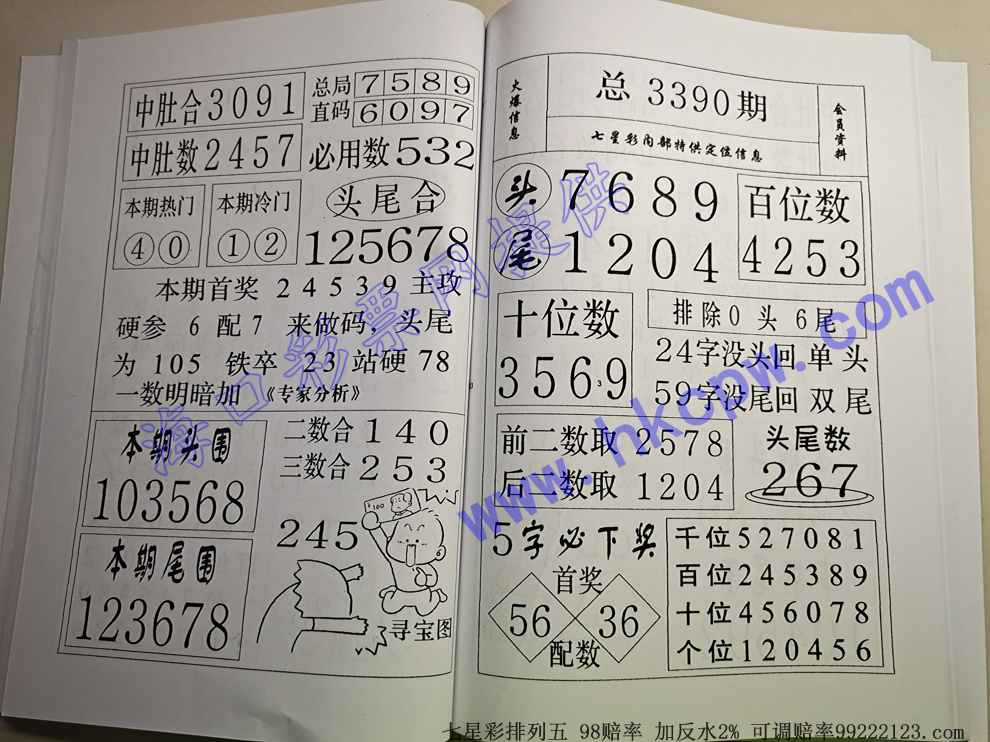 中肚合3091
总局 7589
直码 6097
中肚数2457
必用数532
本期热门
④⓪
本期冷门
①②
头尾合
125678
本期首奖 24539 主攻
硬参 6 配 7 来做码，头尾
为 105 铁卒 23 站硬 78
一数明暗加 《专家分析》
本期头围
103568
二数合 140
三数合 253
本期尾围
123678
245
¥100
寻宝图
火爆信息
总 3390期
七星彩内部特供定位信息
会员资料
头 7689
尾 1204
百位数
4253
十位数
3569
3
排除0 头 6尾
24字没头回 单 头
59字没尾回 双 尾
前二数取 2578
后二数取 1204
头尾数
267
5字必下奖
首奖
56 36
配数
千位527081
百位245389
十位456078
个位120456
海口彩票网提供
www.hkcpw.com
七星彩排列五 98赔率 加反水2% 可调赔率99222123.com